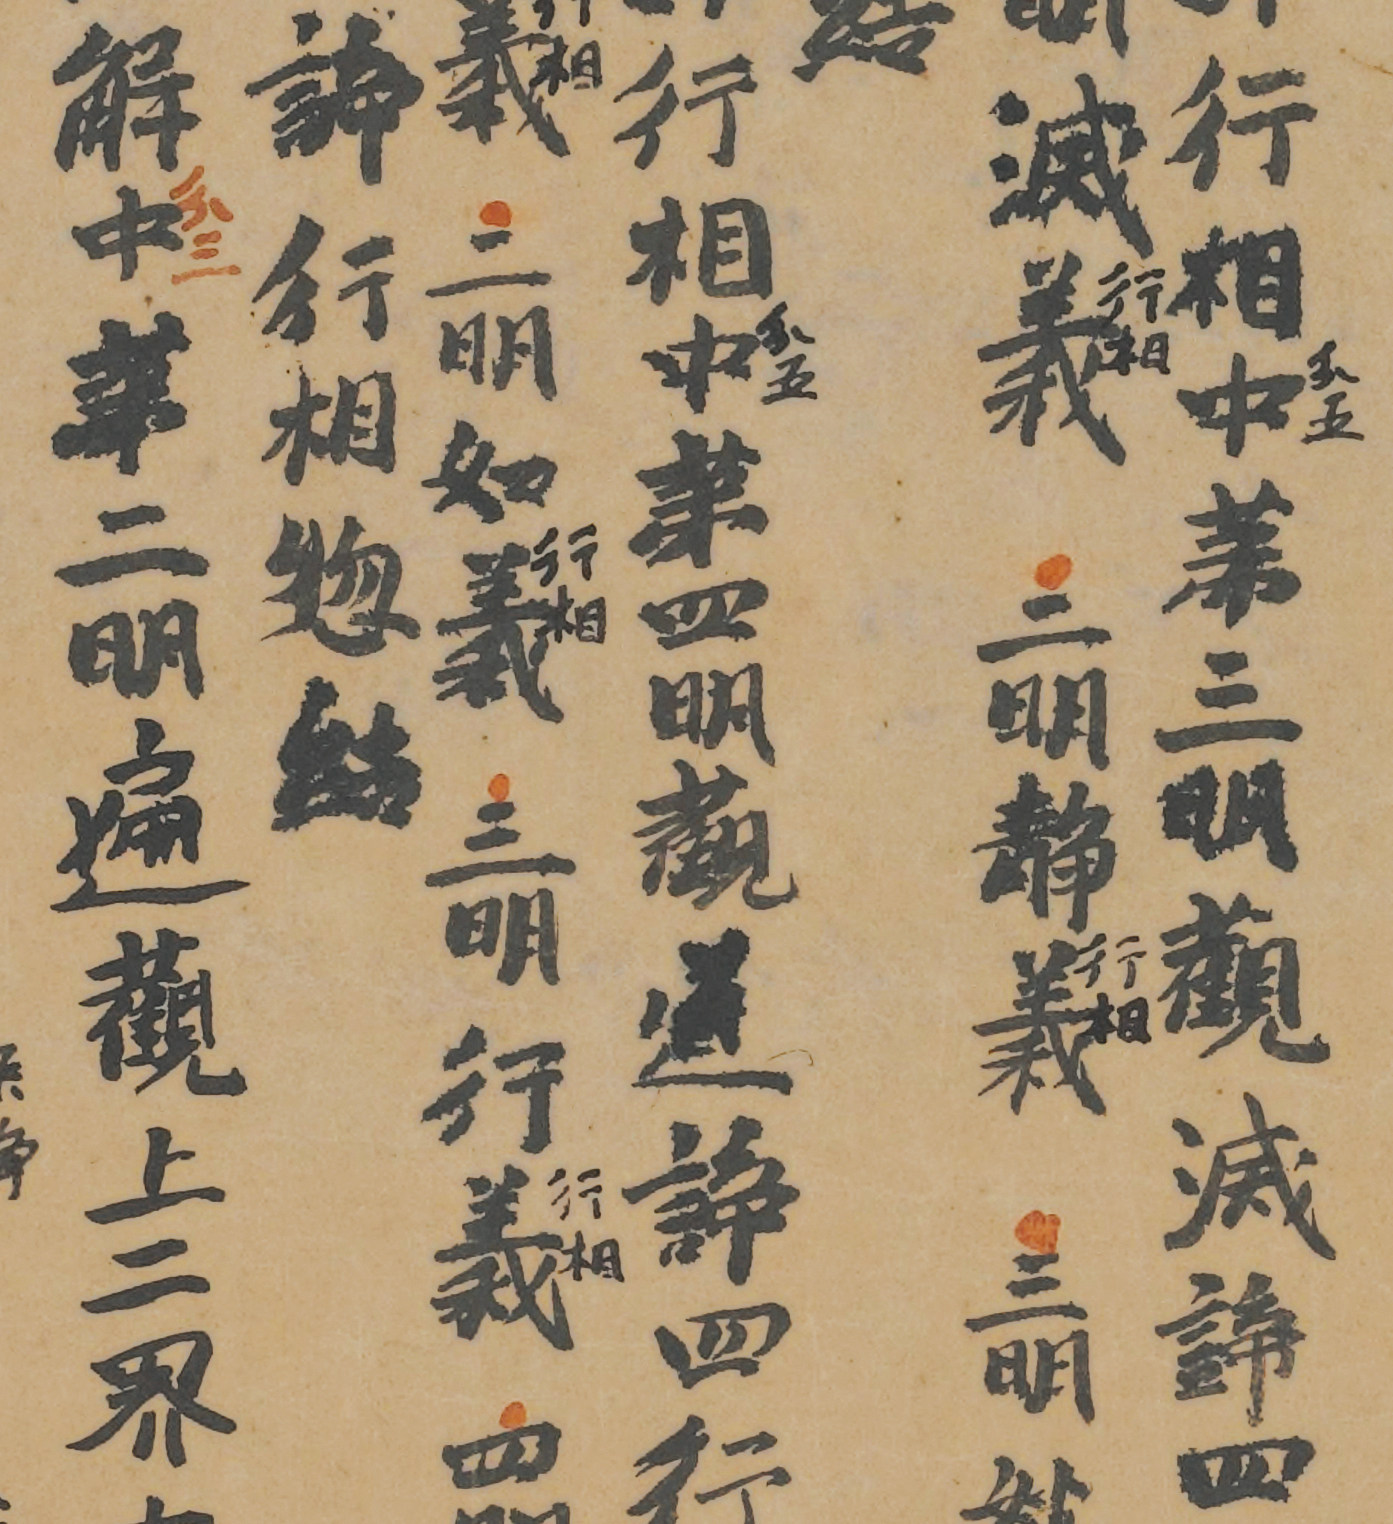 行相中分五第三明觀滅諦四
滅義行相 二明靜義行相 三明妙
結
行相中分五第四明觀道諦四行
義行相 二明如義行相 三明行義行相 四明
諦行相惣結
解中分三第二明遍觀上二界